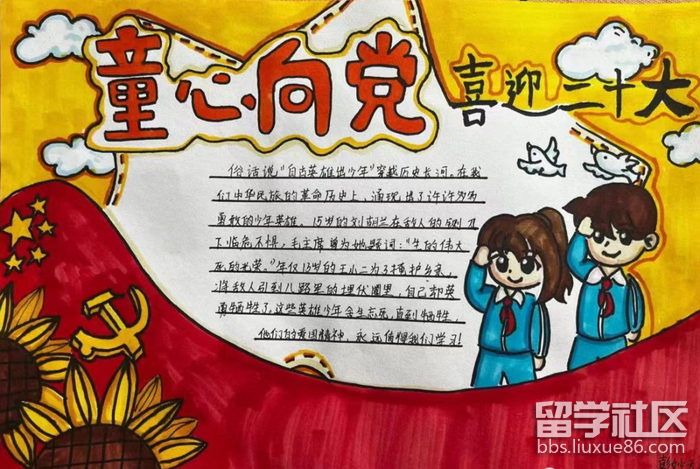 童心向党
喜迎二十大
俗话说“自古英雄出少年”穿越历史长河,在我
们中华民族的革命历史上,涌现出了许许多多
勇敢的少年英雄。15岁的刘胡兰在敌人的铡刀
下临危不惧,毛主席曾为她题词:“生的伟大
死的光荣。”年仅13岁的王小二为了掩护乡亲,
将敌人引到八路军的埋伏圈里,自己却英
勇牺牲了,这些英雄少年舍生忘死,直到牺牲,
他们的爱国精神,永远值得我们学习!
留学社区
bbs.liuxue86.com